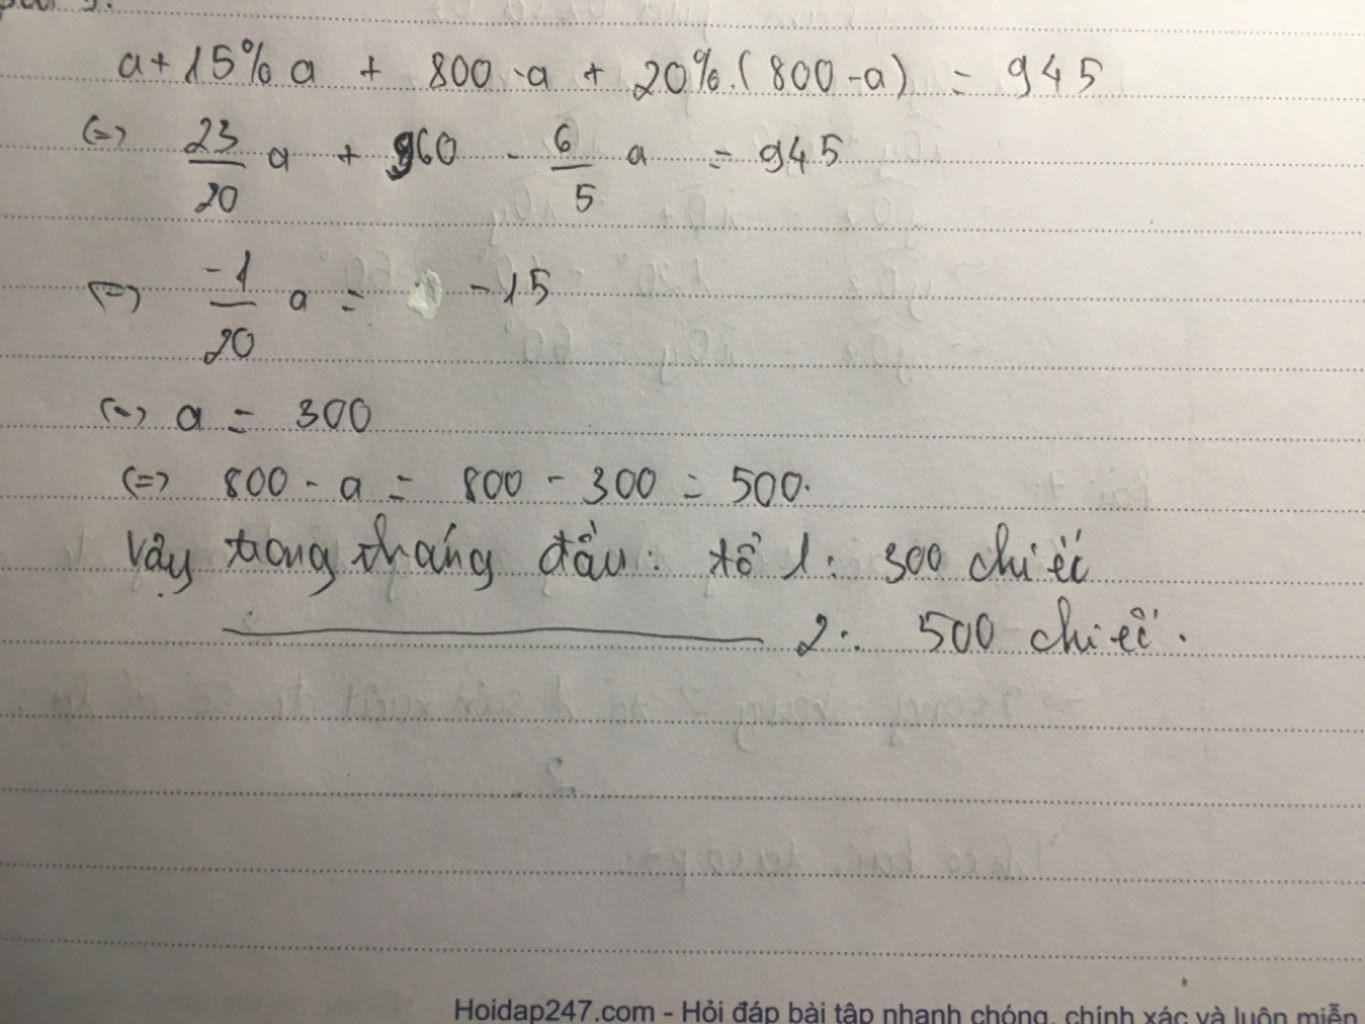 a + 15% a + 800 - a + 20%.(800 - a) = 945
(=) 23/20 a + 960 - 6/5 a = 945
(=) -1/20 a = -15
(=) a = 300
(=) 800 - a = 800 - 300 = 500.
Vậy trong tháng đầu: tổ 1: 300 chiếc
2: 500 chiếc.
Hoidap247.com - Hỏi đáp bài tập nhanh chóng, chính xác và luôn miễn